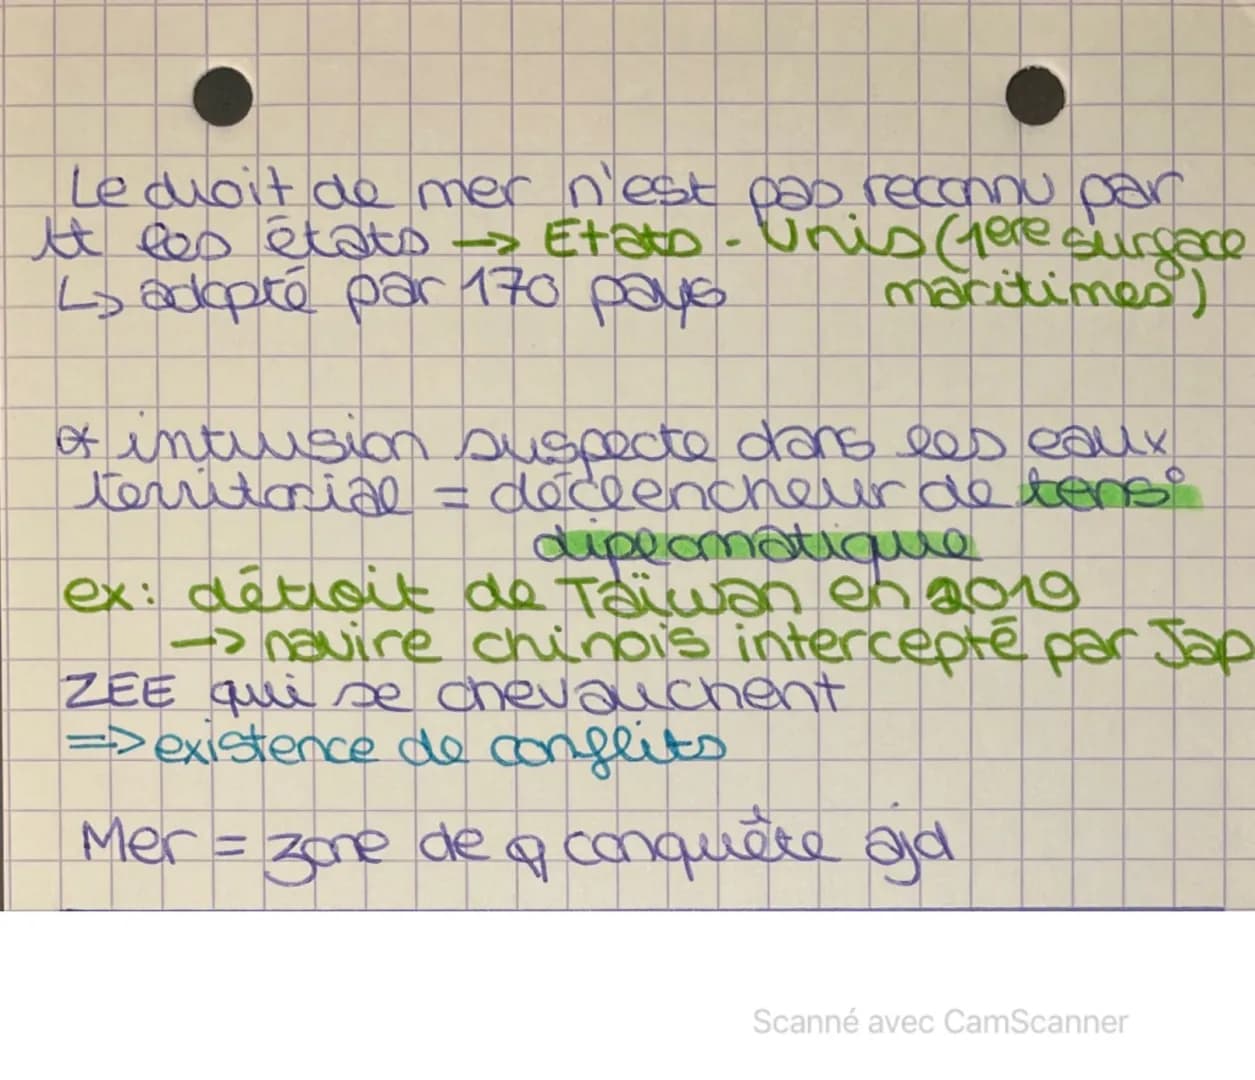 Le droit de mer n'est pas reconnu par
tt les états → Etats-Unis (1ere surface
maritimes)
↳ adopté par 170 pays
intrusion suspecte dans les eaux
territorial = déclencheur de tens°
diplomatique
ex: détroit de Taïwan en 2019
→ navire chinois intercepté par Jap
ZEE qui se chevauchent
=> existence de conflits
Mer = zone de conquête ajd
Scanné avec CamScanner